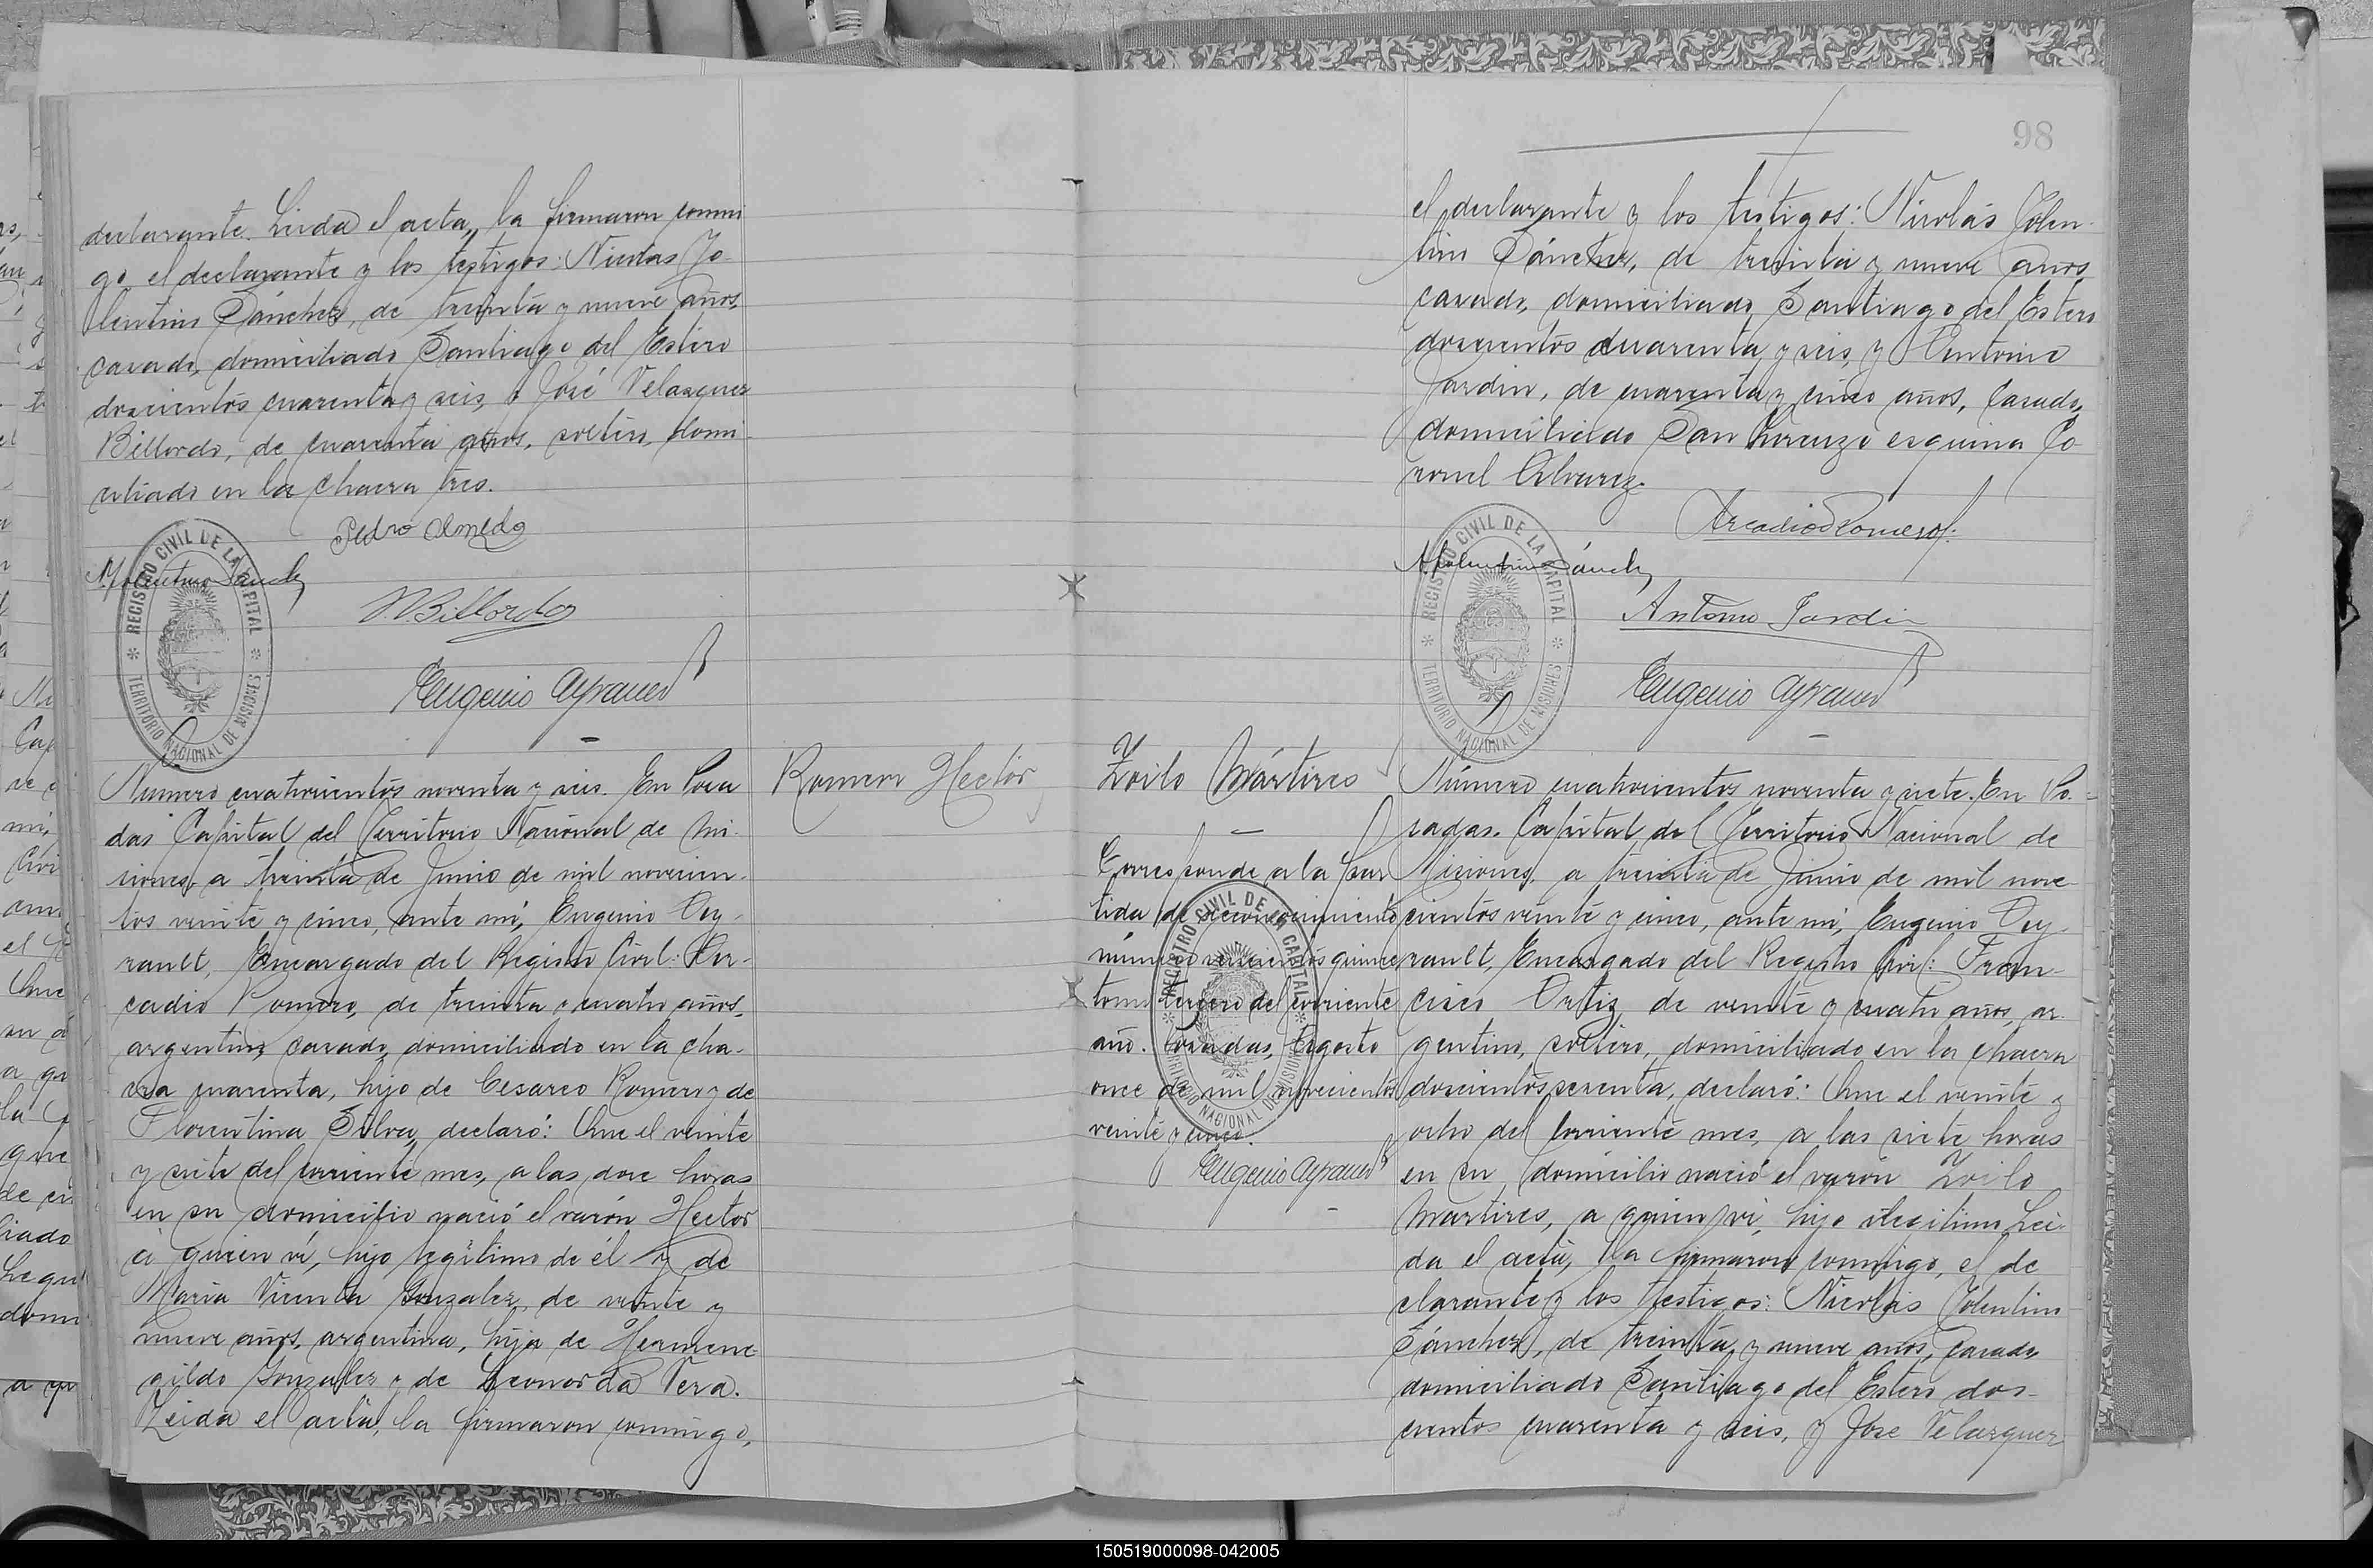 declarante. Leida el acta, la firmaron conmi
go el declarante y los testigos: Nicolas To
lentino Sánchez, de treinta y nueve años,
casado, domiciliado Santiago del Estero
doscientos cuarenta y seis, y José Velazquez
Billordo, de cuarenta años, soltero, domi
ciliado en la chacra tres.
Pedro Olmedo
N. Tolentino Sánchez
REGISTRO CIVIL DE LA CAPITAL
TERRITORIO NACIONAL DE MISIONES
J.V. Billordo
Eugenio Ayrault
Romero Hector
Número cuatrocientos noventa y seis. En Posa
das Capital del Territorio Nacional de Mi-
siones, a treinta de Junio de mil novecien-
tos veinte y cinco, ante mí, Eugenio Ay-
rault, Encargado del Registro Civil: Ar-
cadio Romero, de treinta y cuatro años,
argentino, casado, domiciliado en la cha-
cra cuarenta, hijo de Cesareo Romero y de
Florentina Silva, declaró: Que el veinte
y siete del corriente mes, a las doce horas
en su domicilio nació el varón Hector
a quien ví, hijo legítimo de él y de
María Vicenta Gonzalez, de veinte y
nueve años, argentina, hija de Hermene
gildo Gonzalez y de Leonarda Vera.
Leida el acta, la firmaron conmigo,
98
el declarante y los testigos: Nicolás Tolen-
tino Sánchez, de treinta y nueve años
casado, domiciliado Santiago del Estero
doscientos cuarenta y seis, y Antonio
Jardin, de cuarenta y cinco años, casado,
domiciliado San Lorenzo esquina Co
ronel Alvarez.
Arcadio Romero
N. Tolentino Sánchez
REGISTRO CIVIL DE LA CAPITAL
TERRITORIO NACIONAL DE MISIONES
Antonio Jardin
Eugenio Ayrault
Zoilo Mártires
Corresponde a la par
tida de reconocimiento
número quince
tomo tercero del corriente
año. Posadas, Agosto
once de mil novecientos
veinte y cinco.
Eugenio Ayrault
REGISTRO CIVIL DE LA CAPITAL
TERRITORIO NACIONAL DE MISIONES
Número cuatrocientos noventa y siete. En Po-
sadas. Capital del Territorio Nacional de
Misiones, a treinta de Junio de mil nove-
cientos veinte y cinco, ante mí, Eugenio Ay-
rault, Encargado del Registro Civil: Fran-
cisco Ortiz, de veinte y cuatro años, ar-
gentino, soltero, domiciliado en la chacra
doscientos sesenta, declaró: Que el veinte y
ocho del corriente mes, a las siete horas
en su domicilio nació el varón Zoilo
Martires, a quien ví, hijo ilegitimo. Lei-
da el acta, la firmaron conmigo, el de
clarante y los testigos: Nicolás Tolentino
Sánchez, de treinta y nueve años, casado
domiciliado Santiago del Estero dos-
cientos cuarenta y seis, y José Velazquez
150519000098-042005